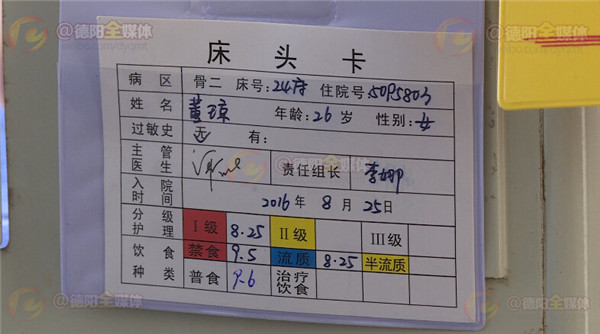 @德阳全媒体
@德阳全媒体
weibo.com/dyqmt
床头卡
病区 骨二 床号: 24床 住院号: 5095803
姓名 黄琼 年龄: 26岁 性别: 女
过敏史 无 有:
主管医生 责任组长 李娜
入院时间 2016年8月25日
分级护理 I级 8.25 II级 III级
饮食种类 禁食 9.5 流质 8.25 半流质
普食 9.6 治疗饮食
@德阳全媒体
@德阳全媒体